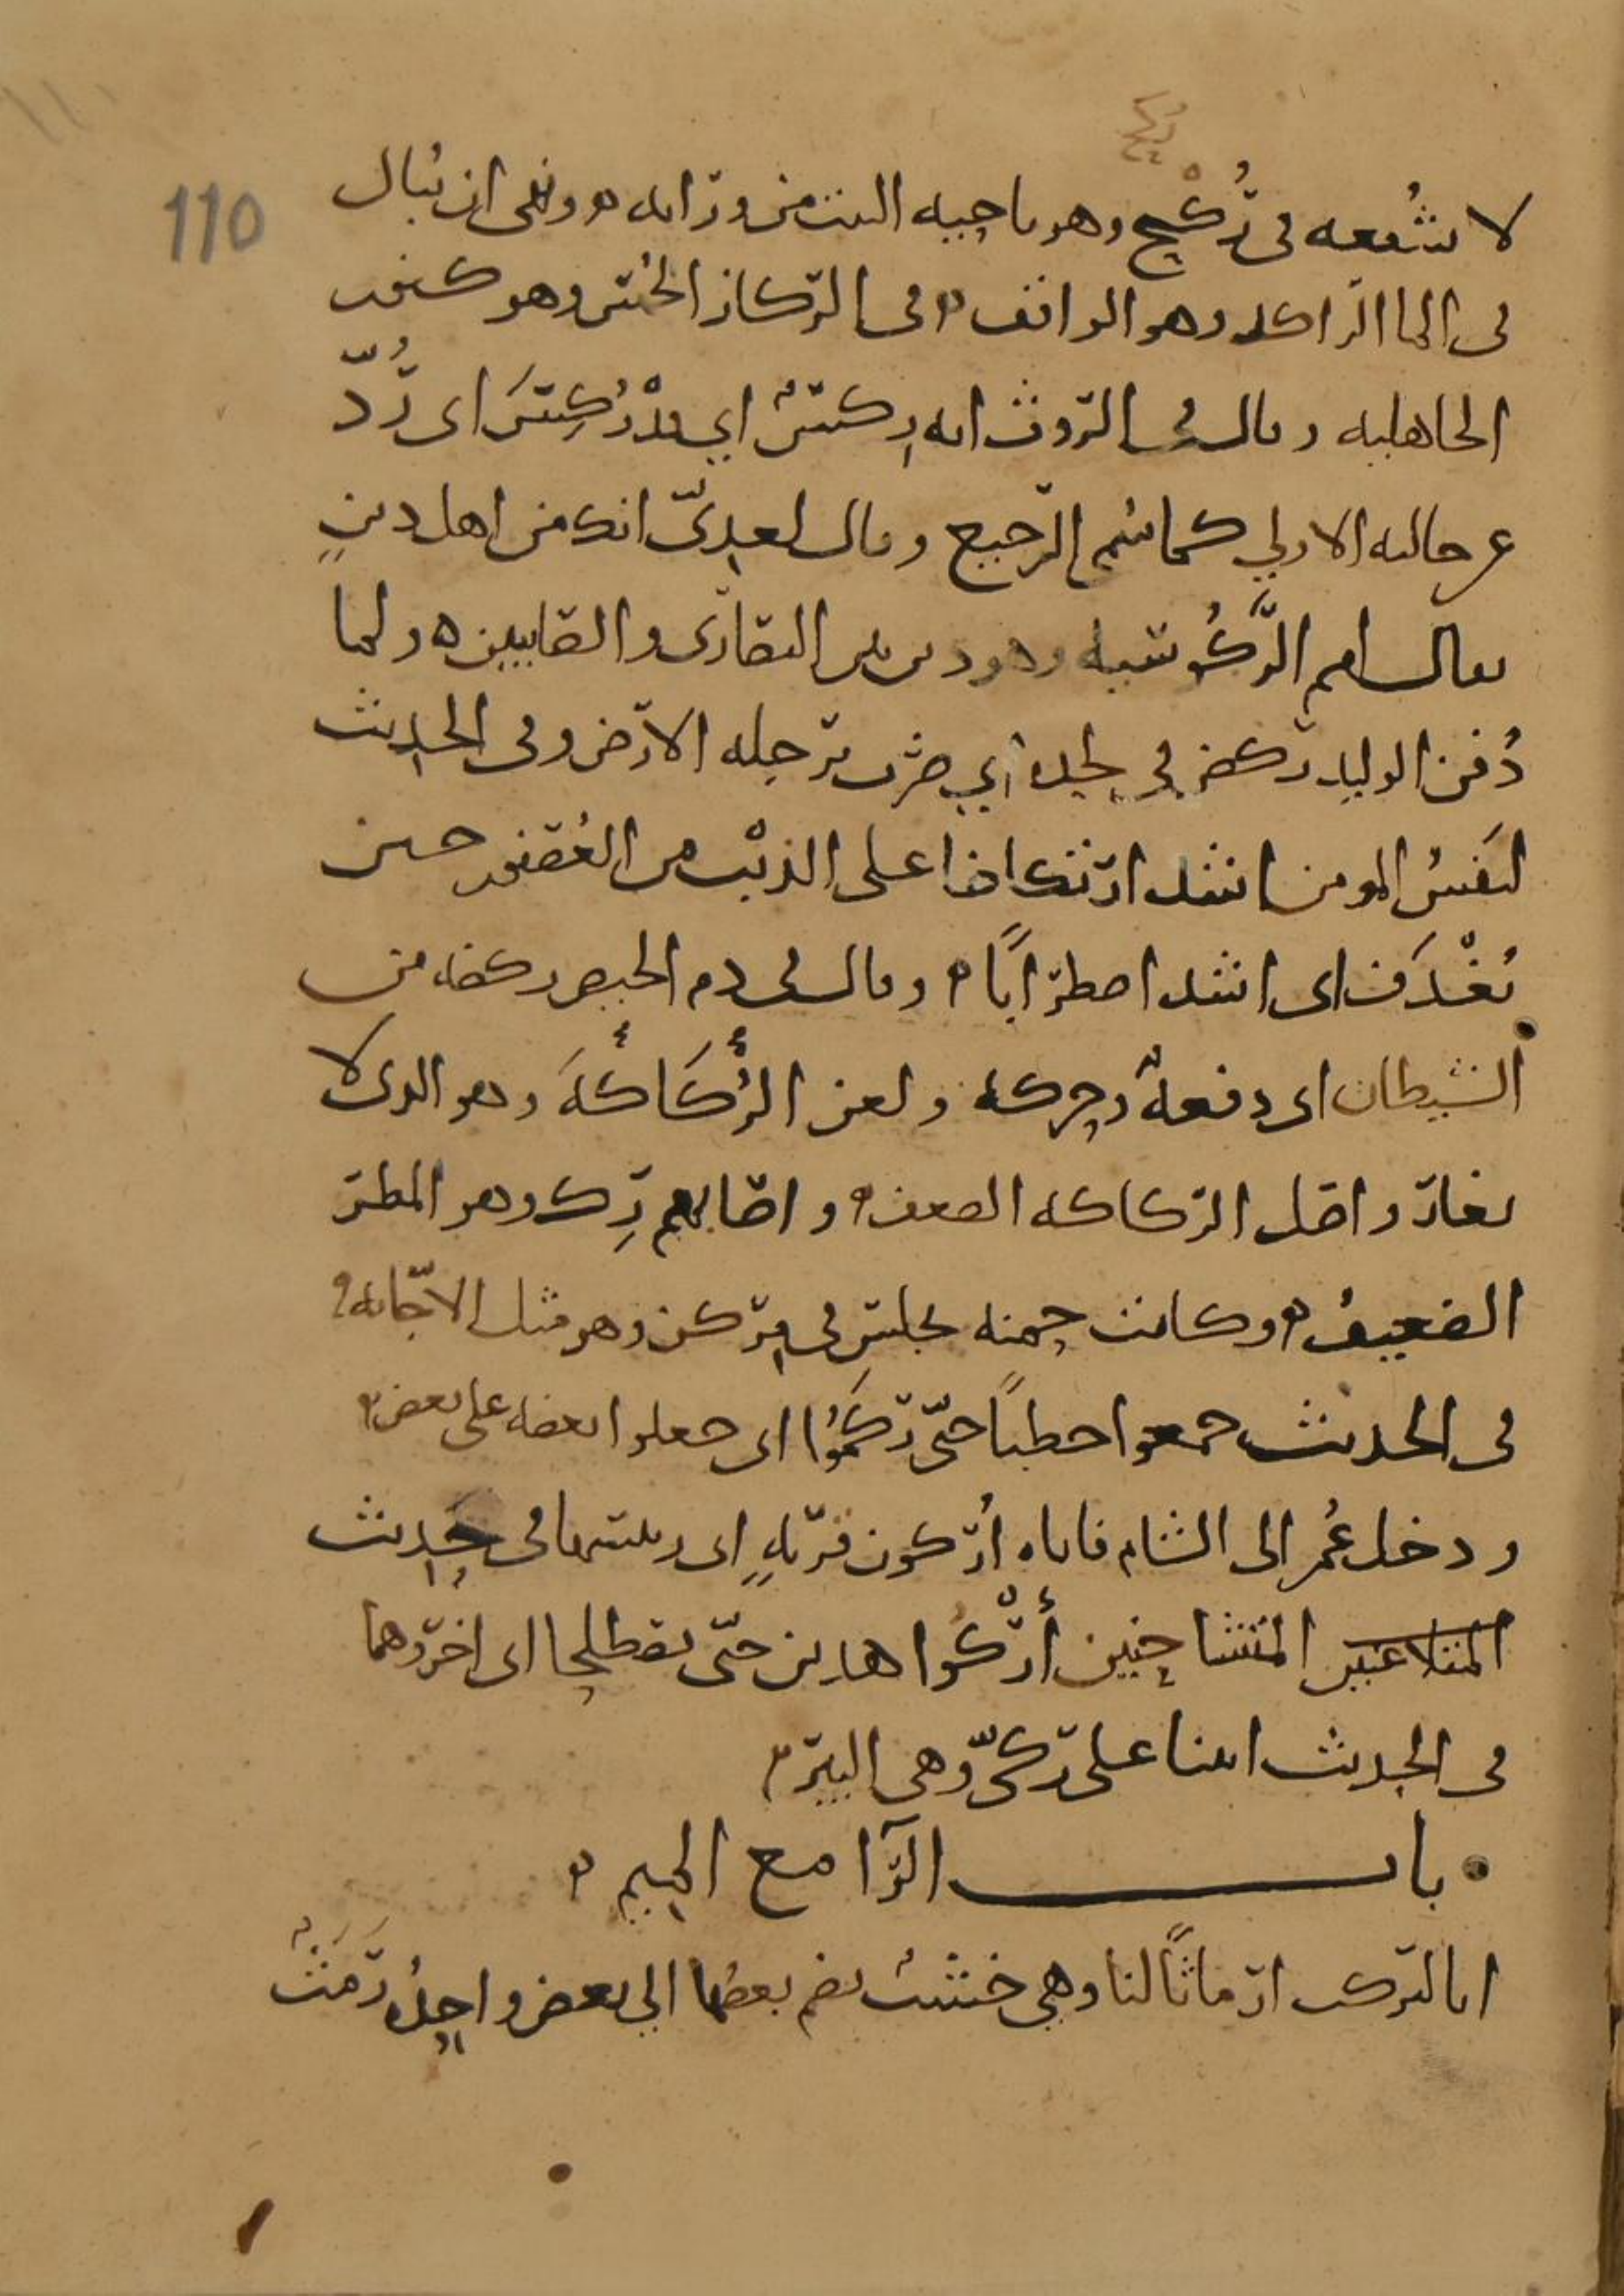 ركح
110
لا شفعه في ركح وهو ناحيه البيت من ورايه ونهى ان يبال
في الما الراكد وهو الواقف في الركاز الخمس وهو كنوز
الجاهليه وقال في الروث انه ركس اي قد ركس اى رد
عن حالته الاولي كما سمي الرجيع وقال لعدي انك من اهل دين
يقال لهم الركوسيه وهو دين بين النصارى والصابيين ولما
دفن الوليد ركض في لحده اي ضرب برجله الارض وفي الحديث
لنفس المومن اشد ارتكاضا على الذنب من العصفور حين
يغدف اى اشد اضطرابا وقال في دم الحيض ركضه من
الشيطان اى دفعة وحركه ولعن الركاكة وهو الذى لا
يغار واصل الركاكه الضعف واصابهم رك وهو المطر
الضعيف وكانت حمنه تجلس في مركن وهو مثل الاجانه
في الحديث جمعوا حطبا حتى ركموا اى جعلوا بعضه على بعض
ودخل عمر الى الشام فاتاه اركون قرية اى رييسها في حديث
المتلاعنين المتشاحنين أركوا هذين حتى يصطلحا اى اخروهما
في الحديث اتينا على ركي وهى البير
باب الرا مع الميم
انا لنركب ارماثا لنا وهي خشب يضم بعضها الي بعض واحده رمث